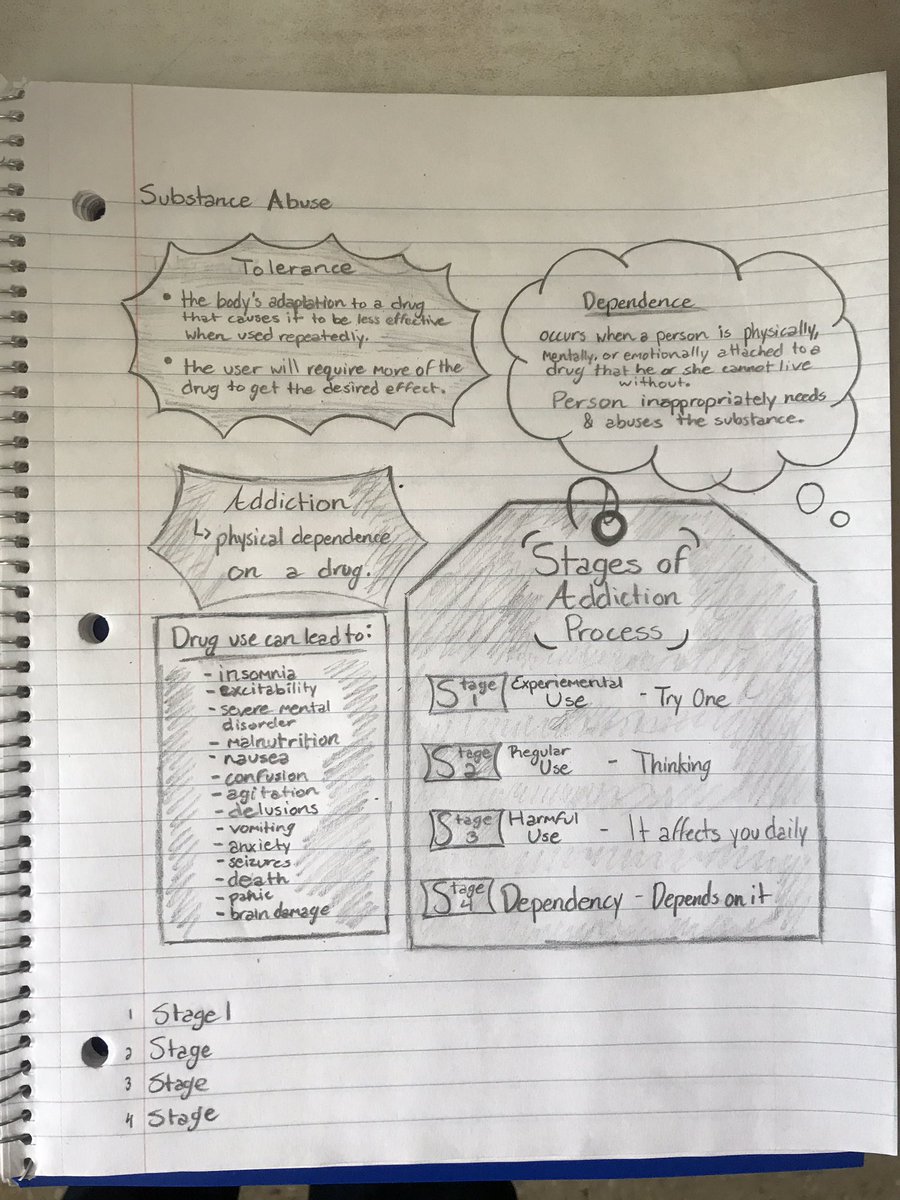 Substance Abuse
Tolerance
• the body's adaptation to a drug
that causes it to be less effective
when used repeatedly.
• the user will require more of the
drug to get the desired effect.
Dependence
occurs when a person is physically,
mentally, or emotionally attached to a
drug that he or she cannot live
without.
Person inappropriately needs
& abuses the substance.
Addiction
↳ physical dependence
on a drug.
Drug use can lead to:
- insomnia
- excitability
- severe mental
disorder
- malnutrition
- nausea
- confusion
- agitation
- delusions
- vomiting
- anxiety
- seizures
- death
- panic
- brain damage
Stages of
Addiction
Process
Stage 1 Experiemental Use - Try One
Stage 2 Regular Use - Thinking
Stage 3 Harmful Use - It affects you daily
Stage 4 Dependency - Depends on it
1 Stage 1
2 Stage
3 Stage
4 Stage